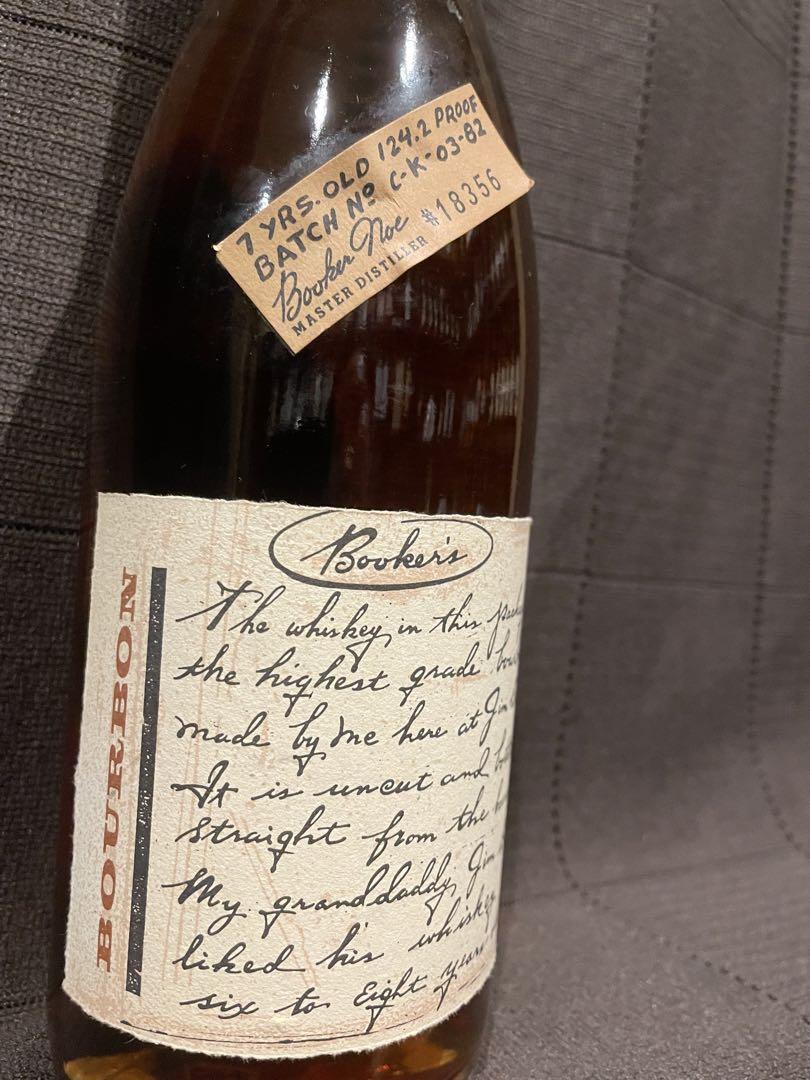 7 YRS. OLD 124.2 PROOF
BATCH Nº C-K-03-82
Booker Noe #18356
MASTER DISTILLER
BOURBON
Booker's
The whiskey in this
the highest grade
made by me here at Jim
It is uncut and
straight from the
My granddaddy, Jim
liked his whiskey
six to eight years